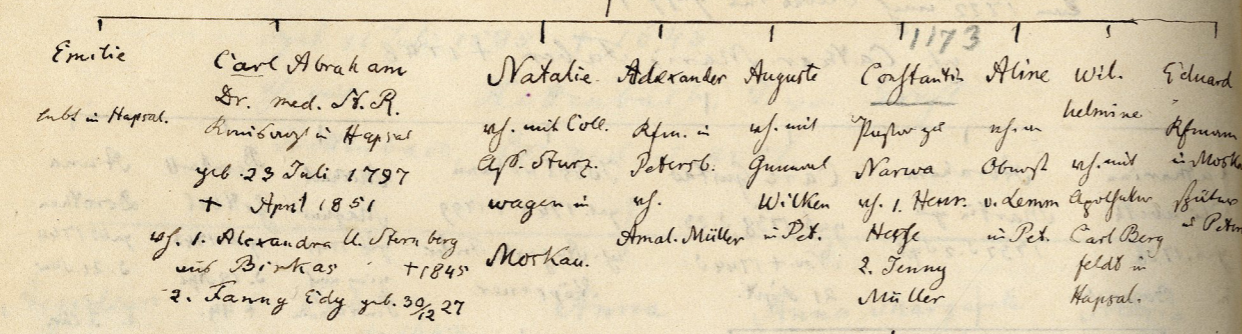 1173
Emilie
lebt in Hapsal.
Carl Abraham
Dr. med. St. R.
Kreisarzt in Hapsal
geb. 23 Juli 1797
+ April 1851
vh. 1. Alexandra U. Sternberg
aus Birkas +1845
2. Fanny Edy geb. 30/12 27
Natalie.
vh. mit Coll.
Aß. Sturz.
wagen in
Moskau.
Alexander
Kfm. in
Petersb.
vh.
Amal. Müller
Auguste
vh. mit
General
Wilken
in Pet.
Constantin
Pastor zu
Narwa
vh. 1. Henr.
Hesse
2. Jenny
Müller
Aline
vh. an
Oberst
v. Lemm
in Pet.
Wil.
helmine
vh. mit
Apotheker
Carl Berg
feldt in
Hapsal.
Eduard
Kfmann
in Mosk
später
Peter